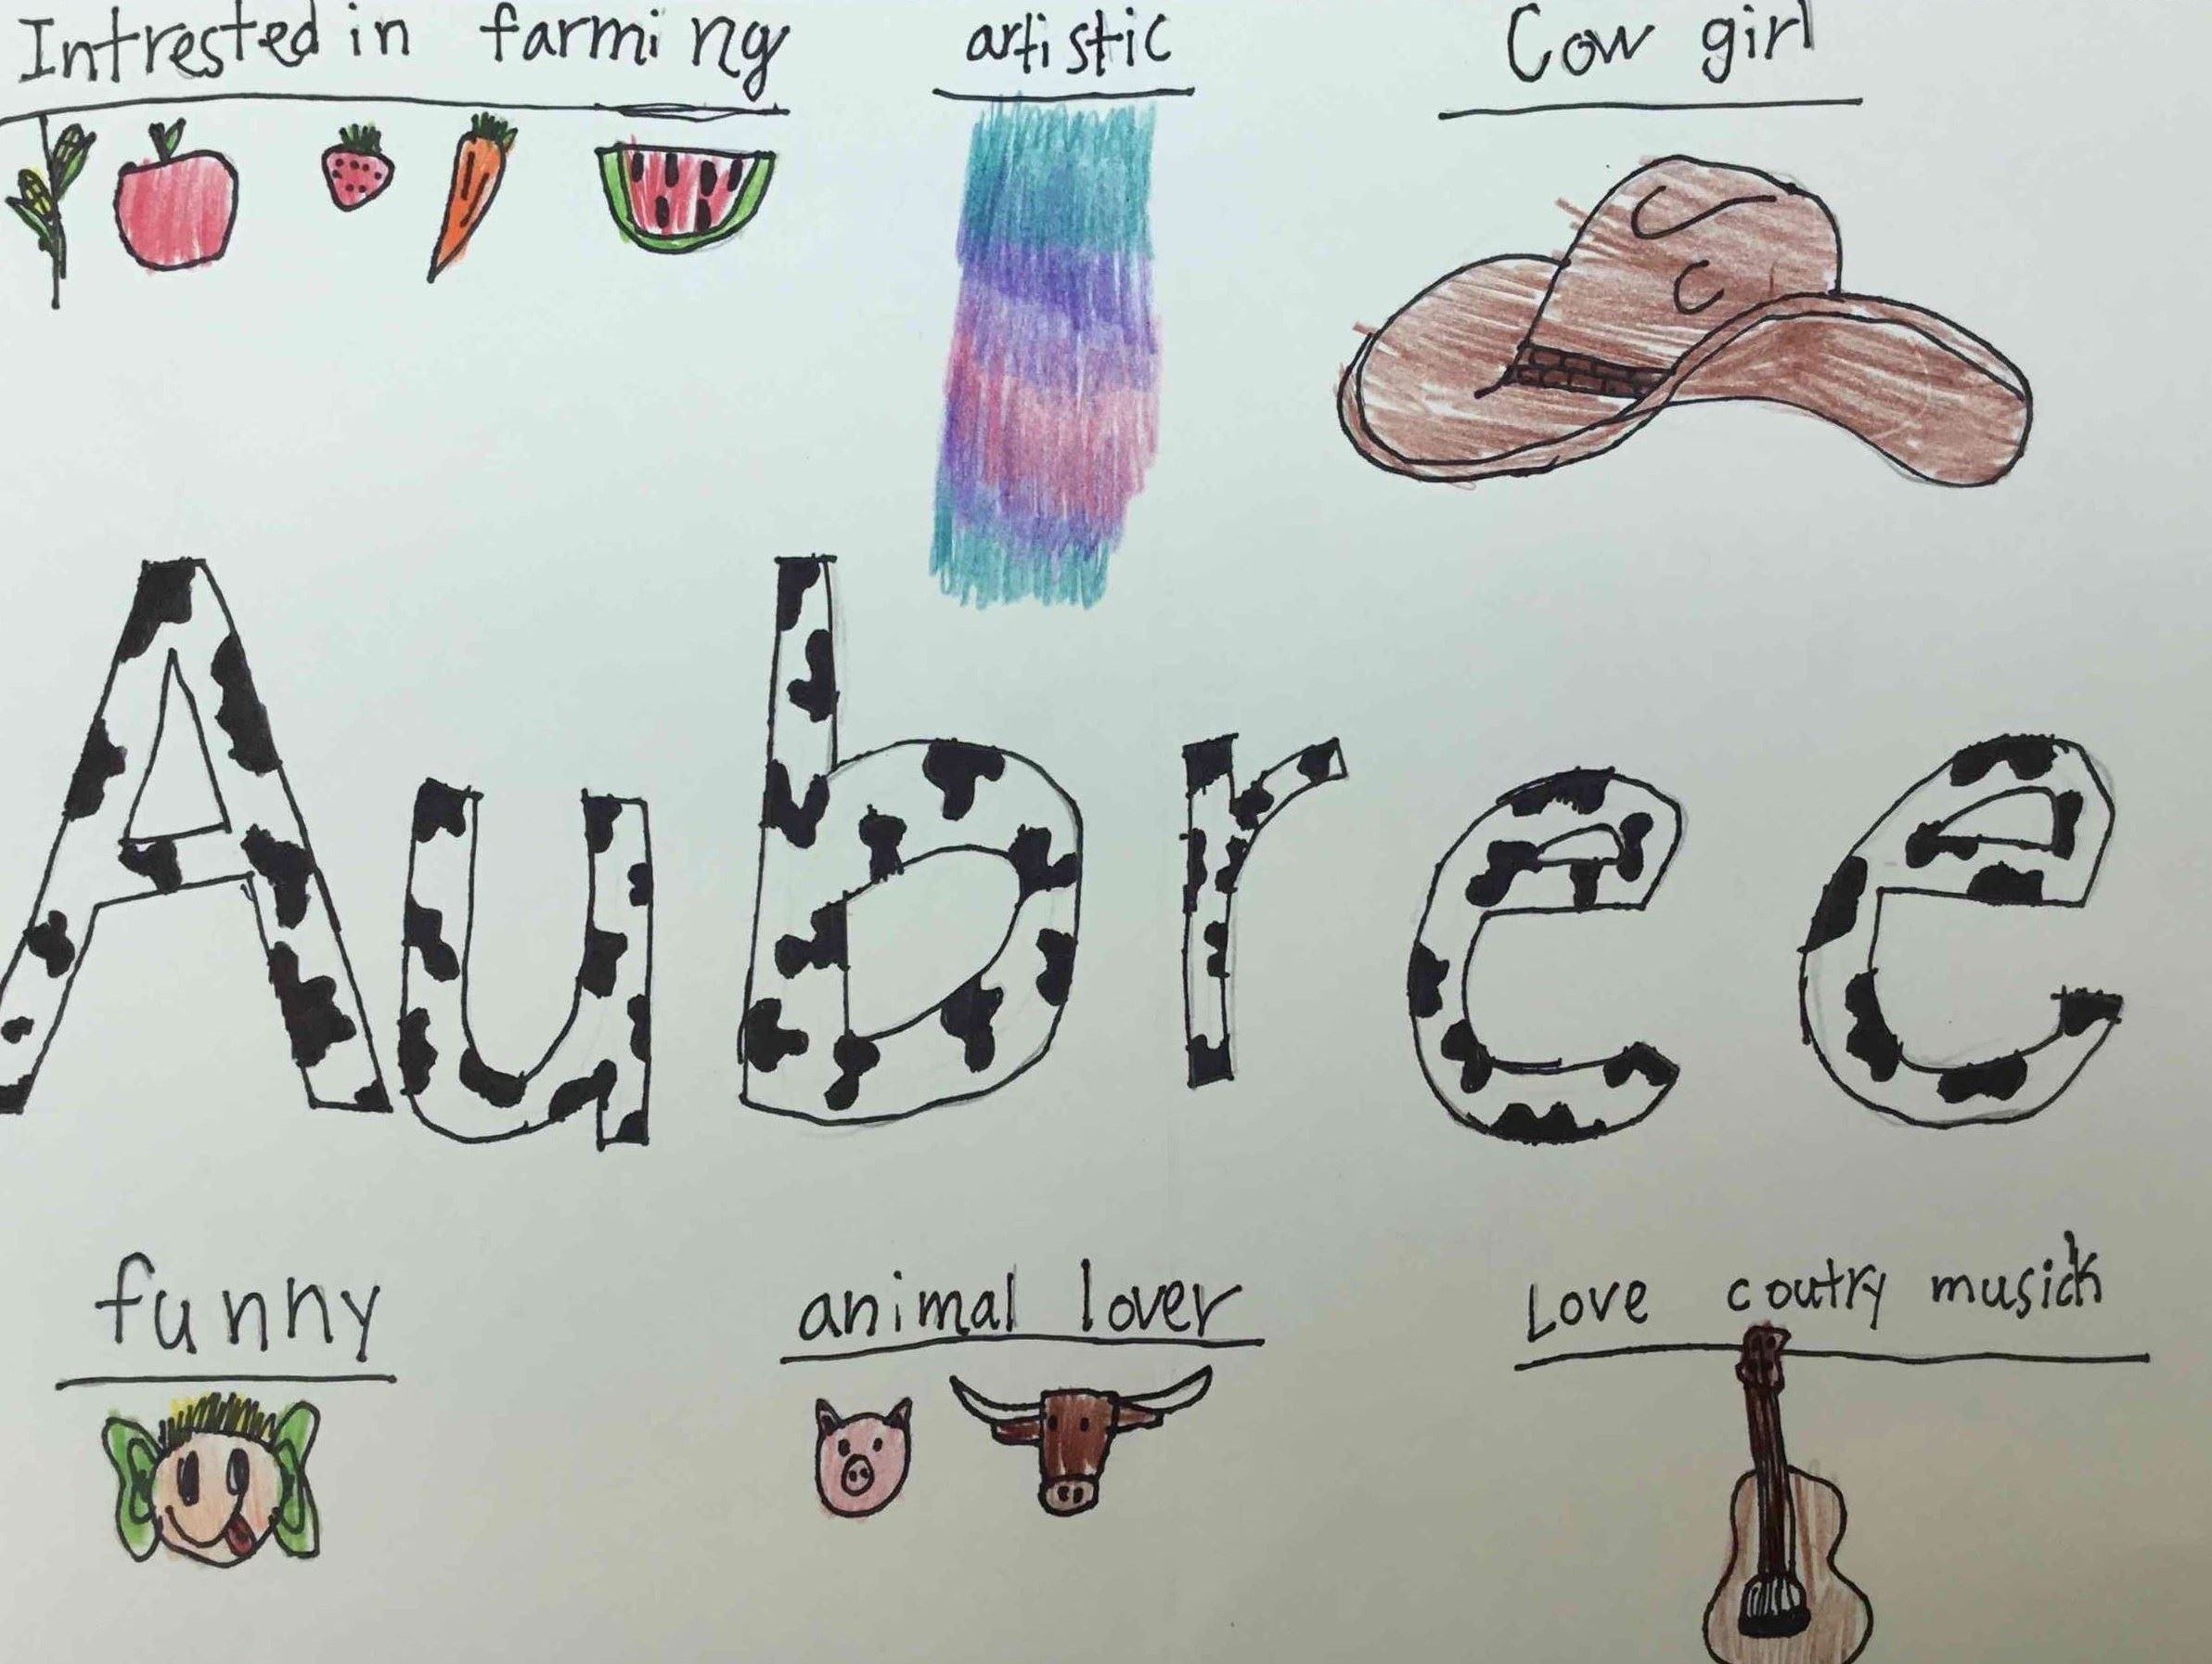 Intrested in farming
artistic
Cow girl
Aubree
funny
animal lover
Love coutry musick